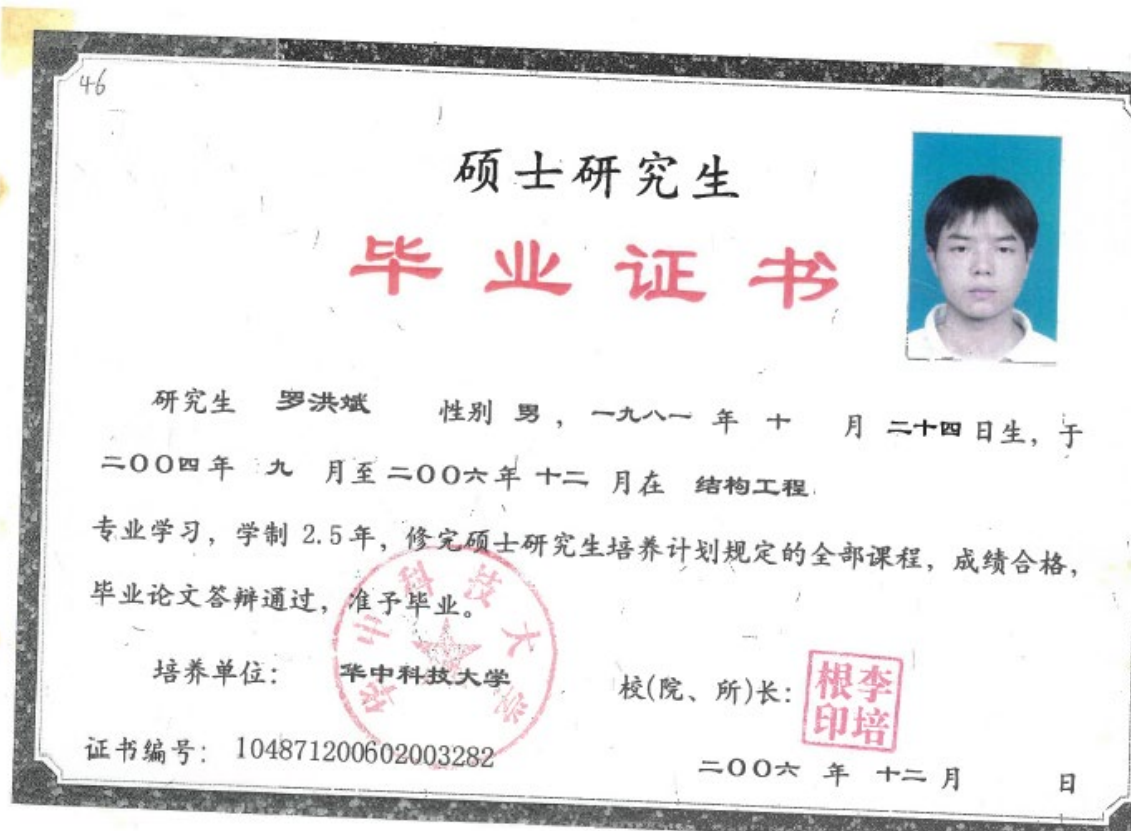 46
硕士研究生
毕业证书
研究生 罗洪斌 性别 男 , 一九八一 年 十 月 二十四 日生, 于
二〇〇四 年 九 月至 二〇〇六 年 十二 月在 结构工程
专业学习, 学制 2.5 年, 修完硕士研究生培养计划规定的全部课程, 成绩合格,
毕业论文答辩通过, 准予毕业。
华中科技大学
培养单位: 华中科技大学 校(院、所)长: 李培根印
证书编号: 104871200602003282 二〇〇六 年 十二 月 日